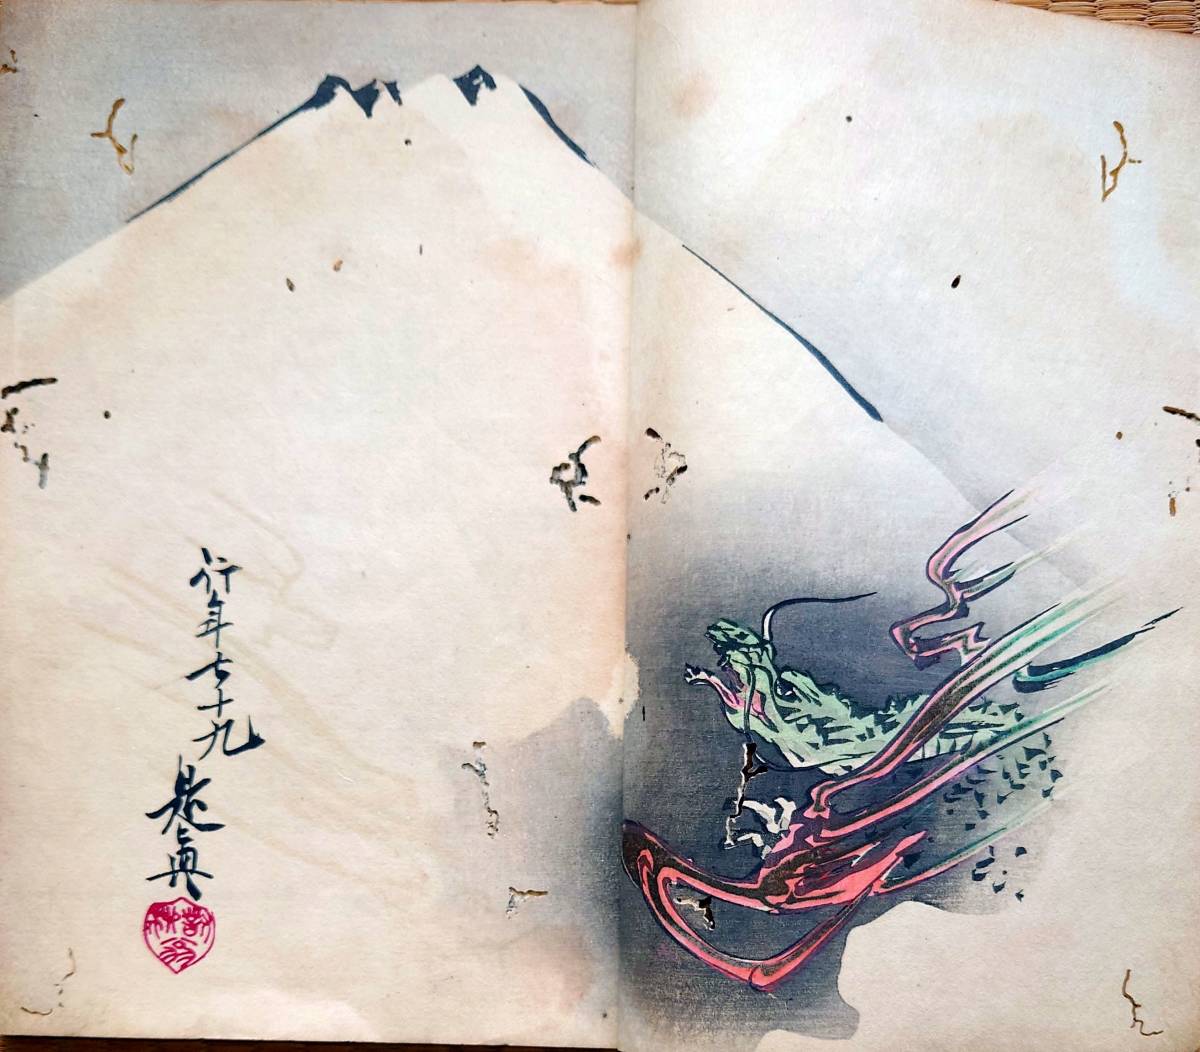 行年七十九
是真